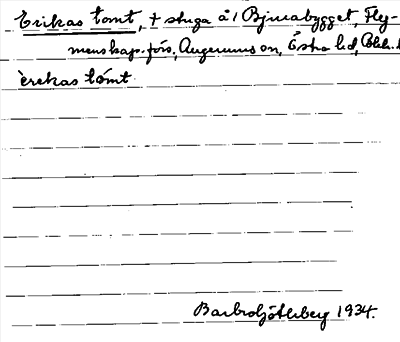 Erikas tomt, † stuga å 1 Bjurabygget, Fly-
menskap. förs, Augerums sn, Östra hd, Blek. l.
èrekas tómt
Barbro Söderberg 1934.